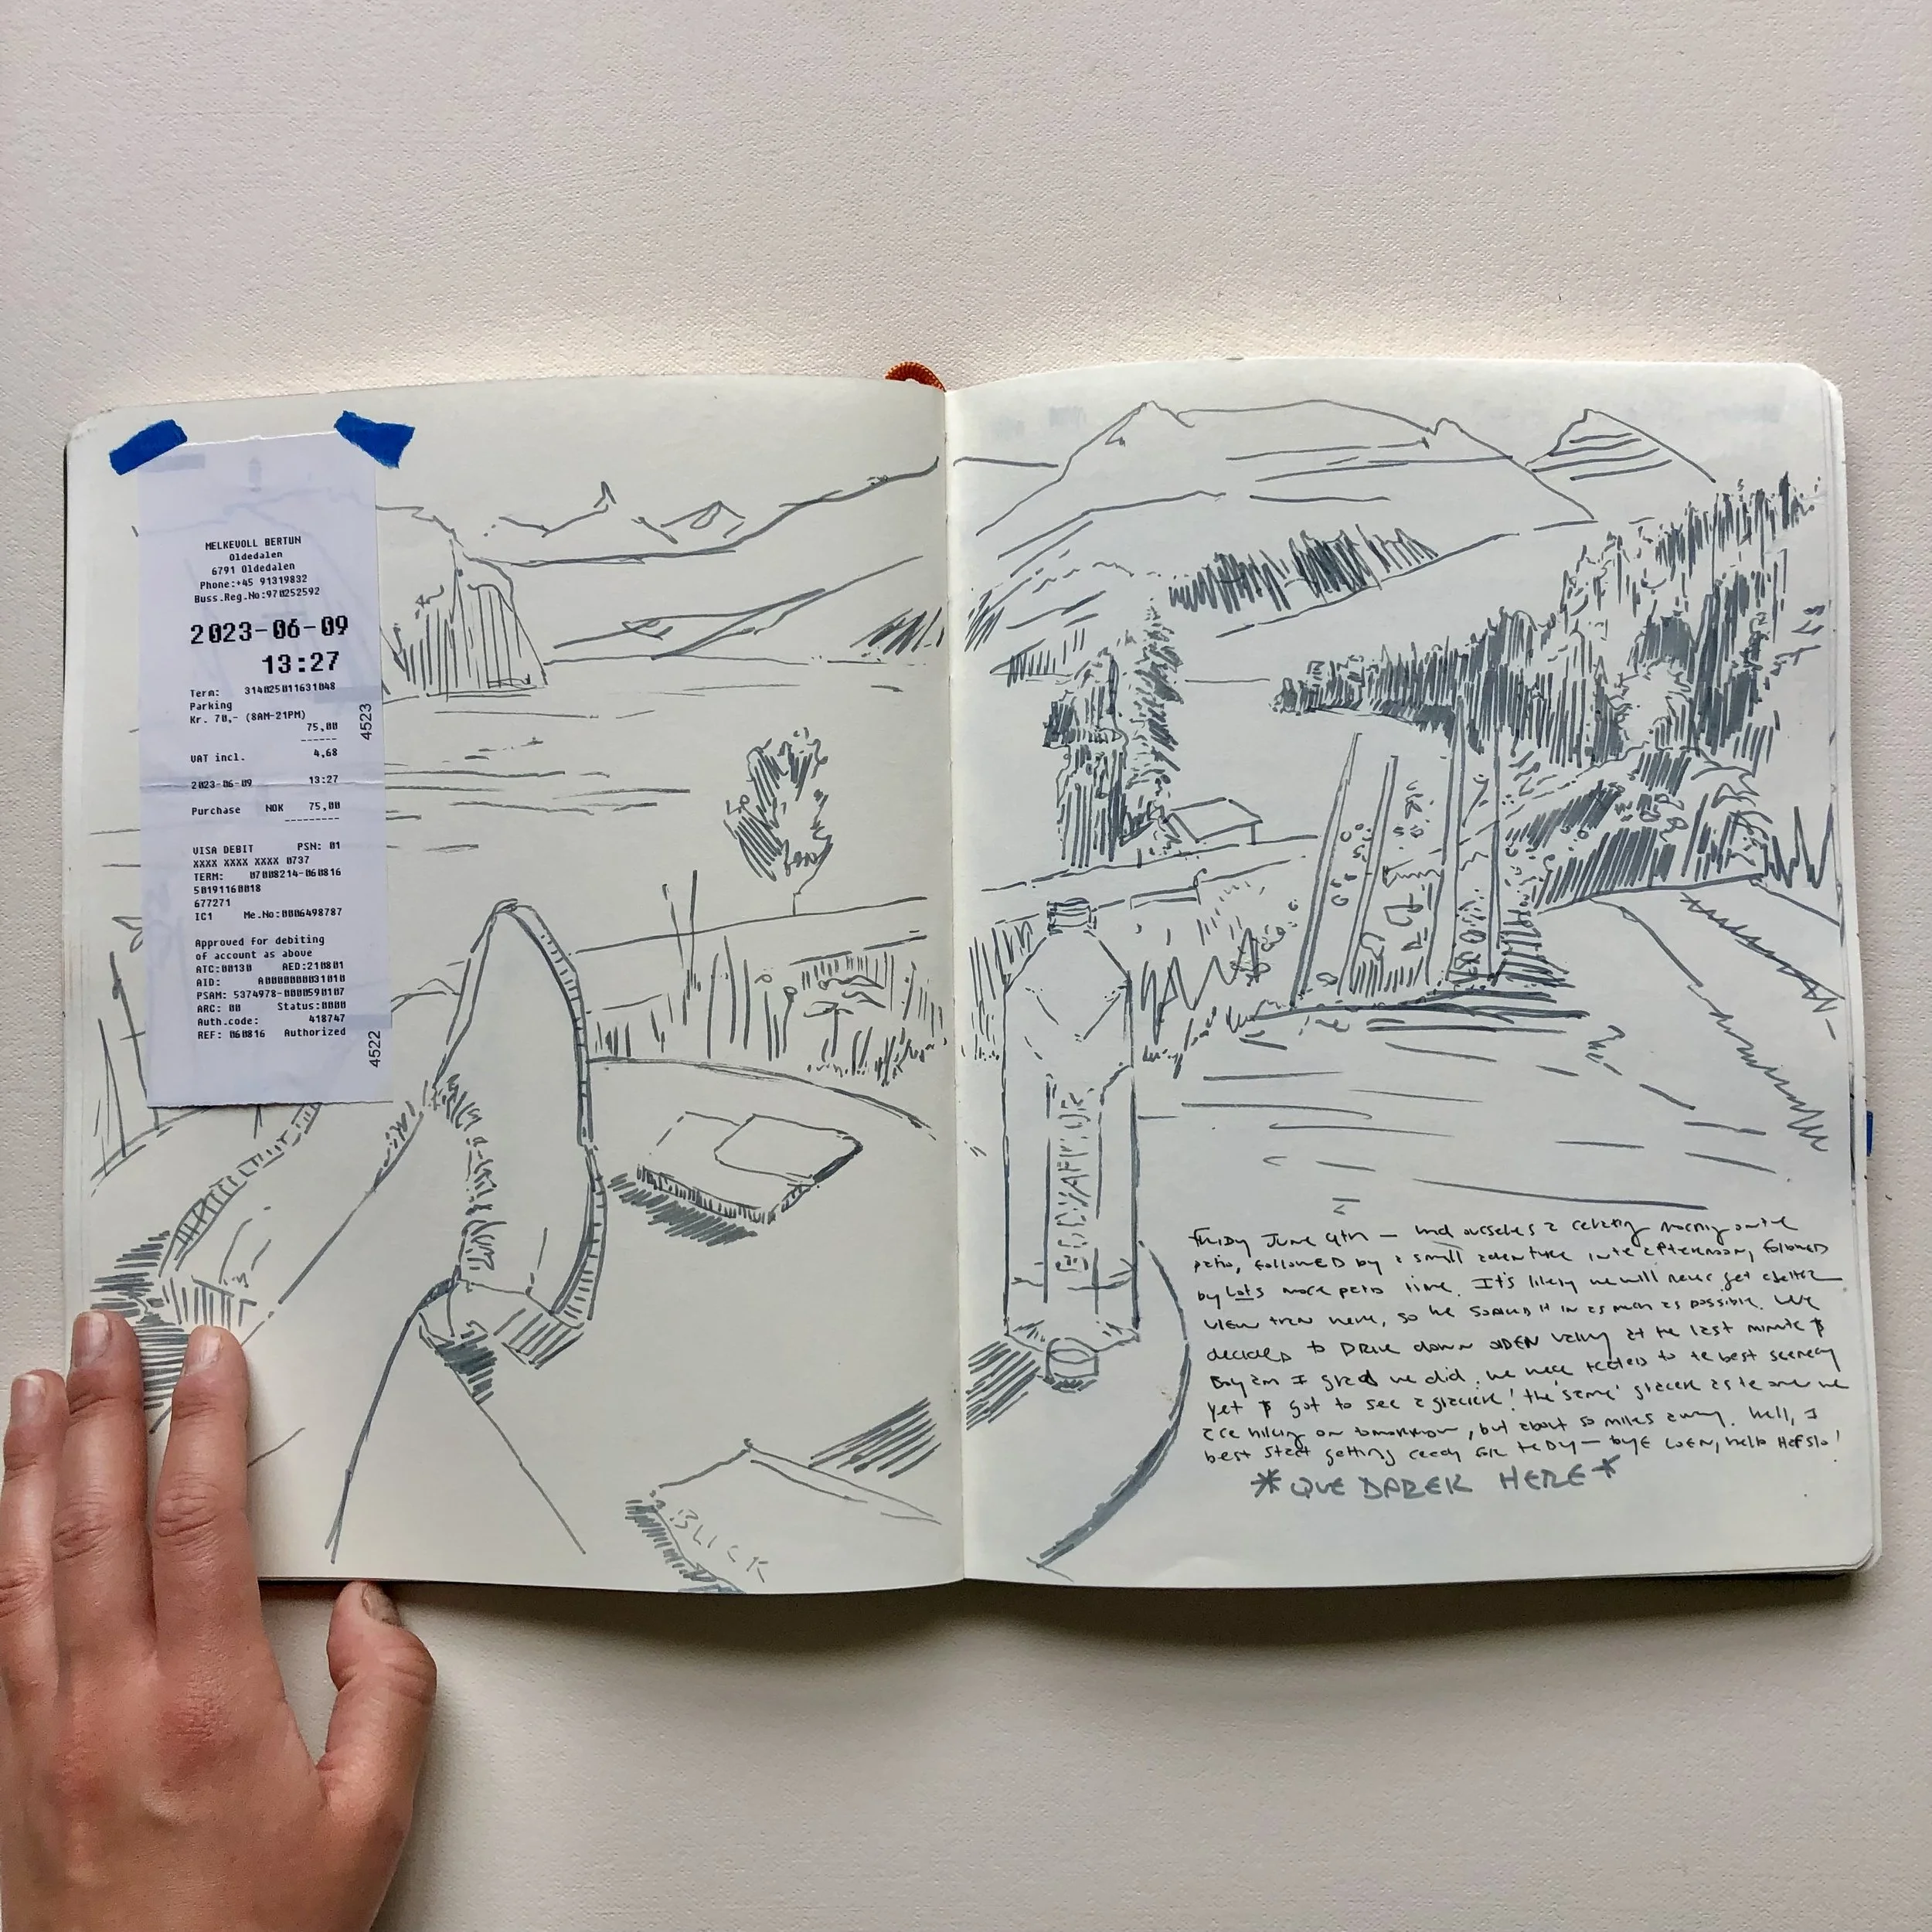 MELKEVOLL BERTUN
Oldedalen
6791 Oldedalen
Phone:+45 91319832
Buss.Reg.No:970252592
2023-06-09
13:27
Term: 314025011631048
Parking
Kr. 70,- (8AM-21PM)
75,00
VAT incl. 4,68
2023-06-09 13:27
Purchase NOK 75,00
VISA DEBIT PSN: 01
XXXX XXXX XXXX 0737
TERM: 07008214-060816
50191160018
677271
IC1 Me.No:0006498787
Approved for debiting
of account as above
ATC:00130 AED:210801
AID: A0000000031010
PSAM: 5374978-0000590107
ARC: 00 Status:0000
Auth.code: 418747
REF: 060816 Authorized
4523
4522
BLICK
BODYARMOR
Friday June 9th — had ourselves a relaxing morning on the
patio, followed by a small adventure in the afternoon, followed
by lots more patio time. It's likely we will never get a better
view than here, so we soaked it in as much as possible. We
decided to drive down olden valley at the last minute &
boy am I glad we did. we were treated to the best scenery
yet & got to see a glacier! the 'same' glacier as the one we
are hiking on tomorrow, but about 50 miles away. Well, I
best start getting ready for bed — bye Loen, hello Hafslo!
*QUE DAREK HERE*